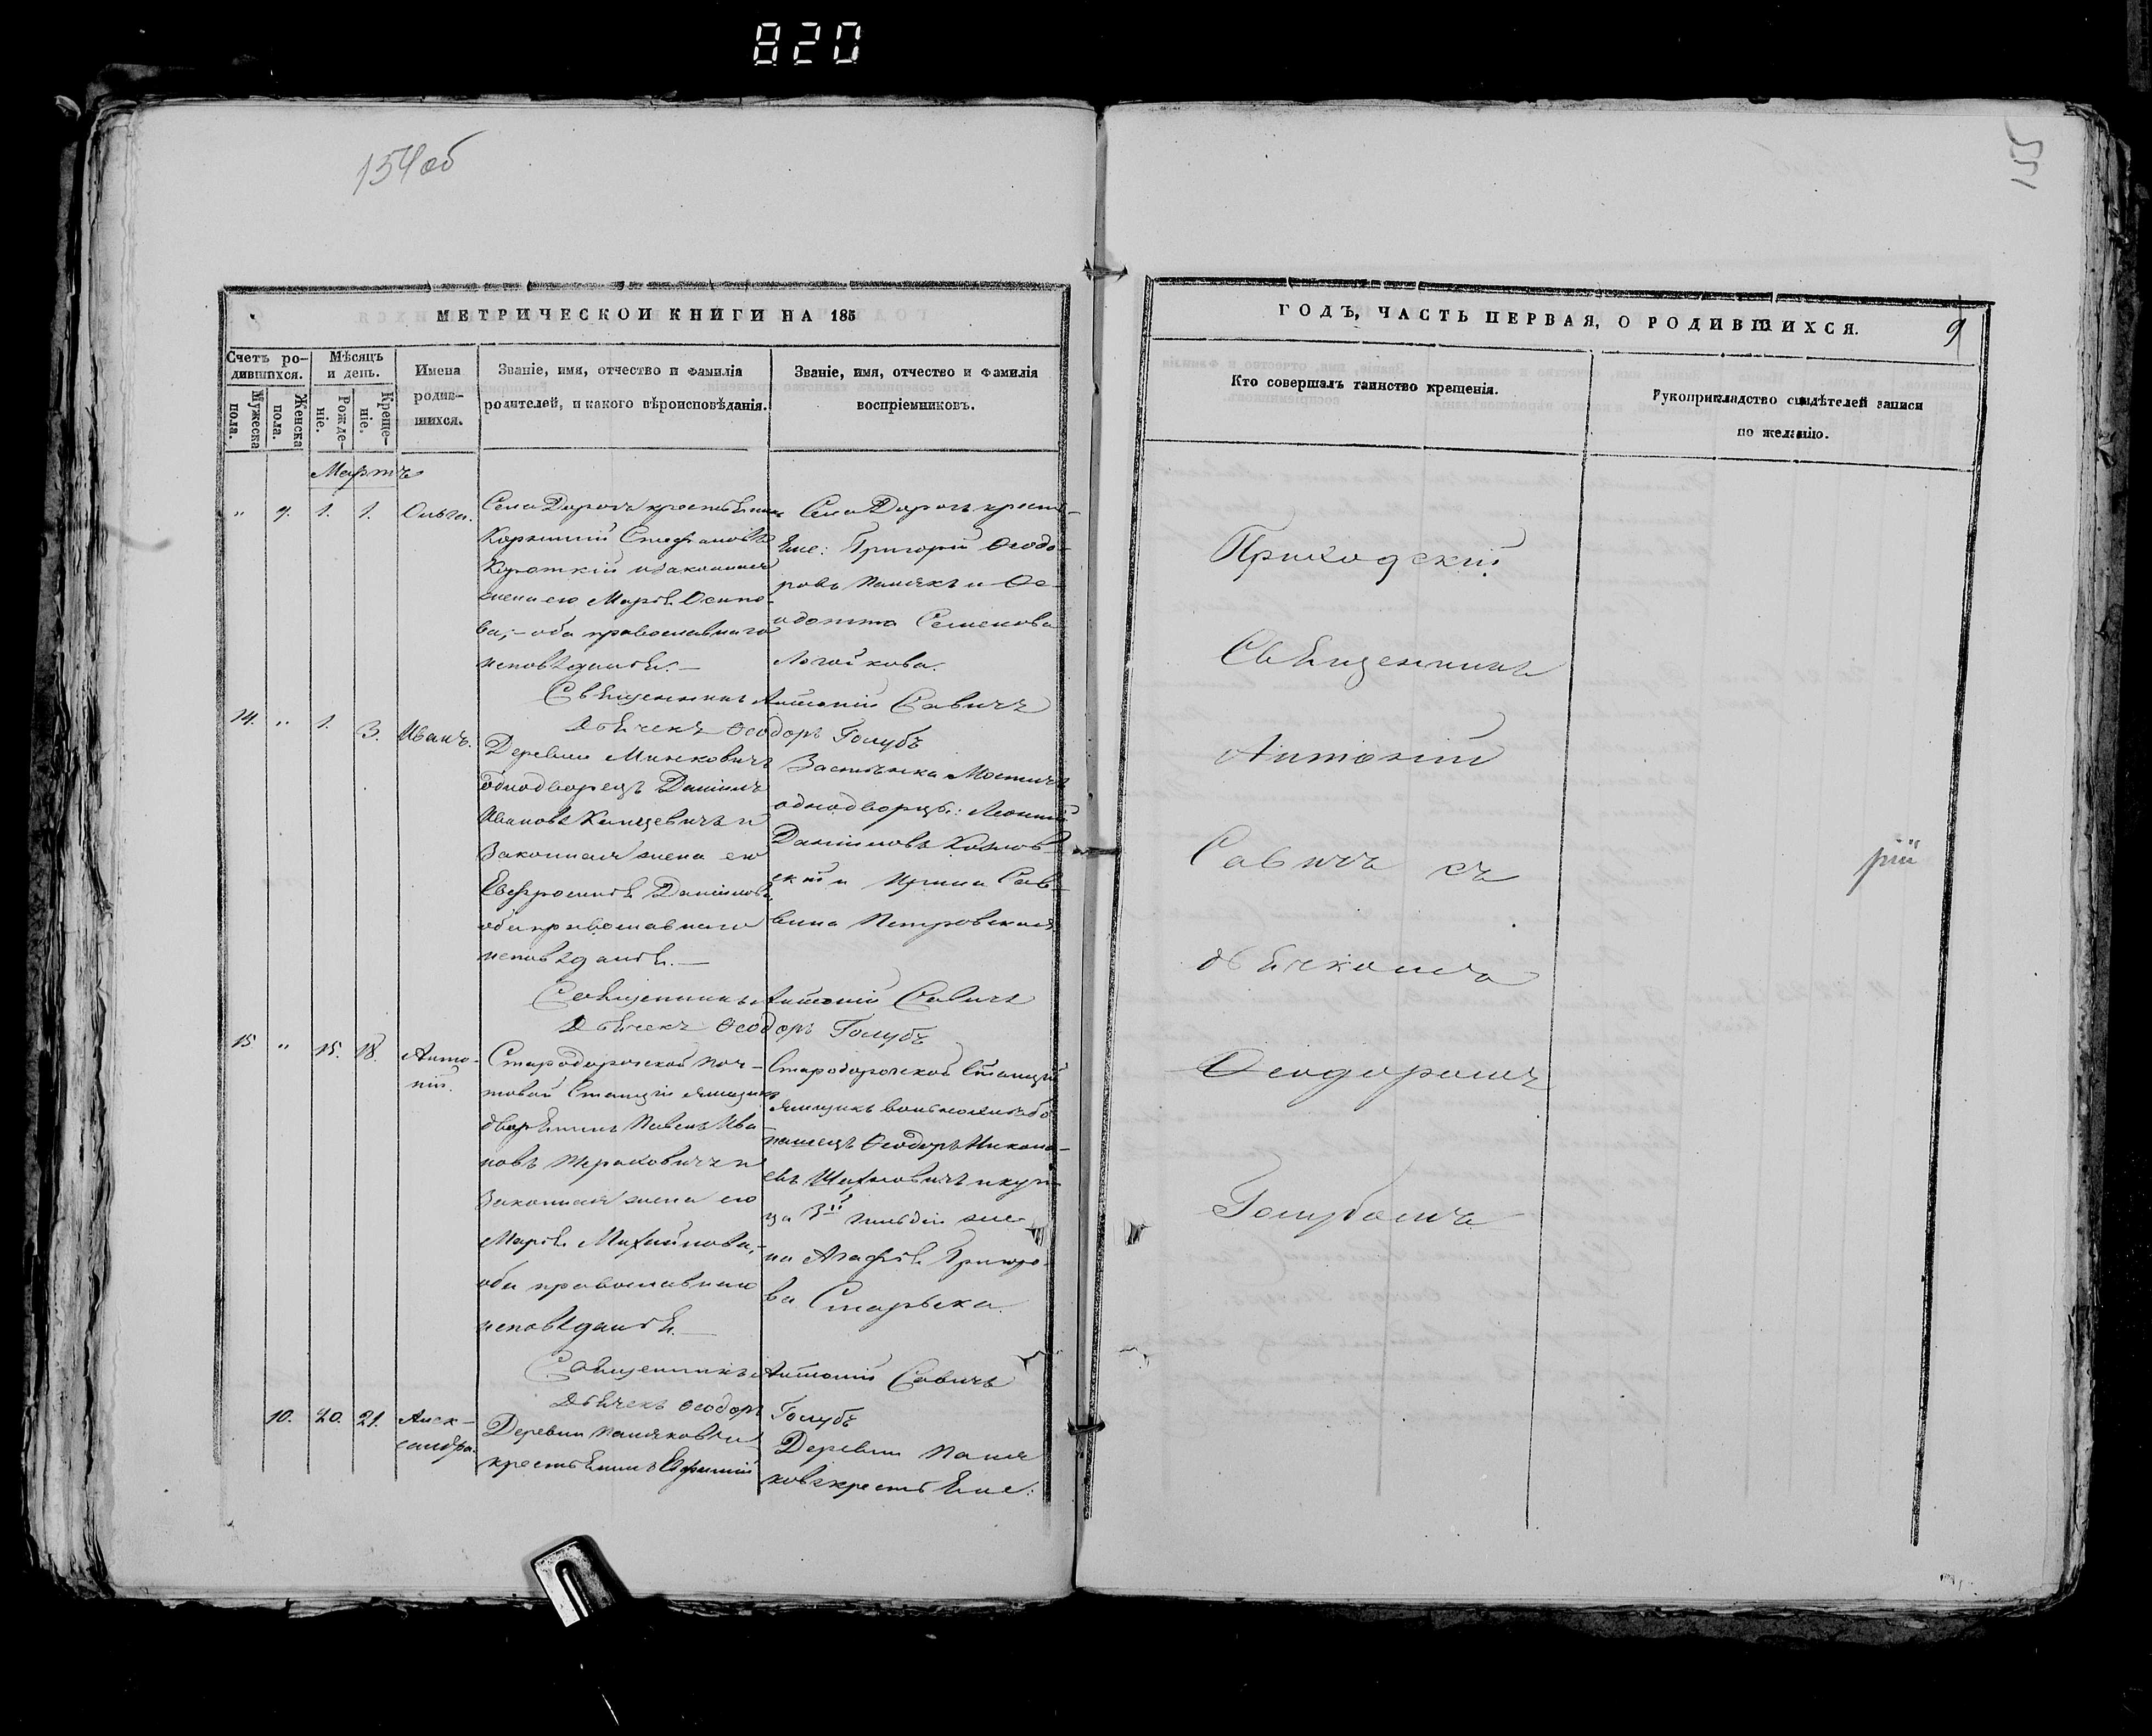 820
154 об
155
МЕТРИЧЕСКОЙ КНИГИ НА 185
Счетъ родившихся.
Мѣсяцъ и день.
Имена родившихся.
Званіе, имя, отчество и фамилія родителей, и какого вѣроисповѣданія.
Званіе, имя, отчество и фамилія воспріемниковъ.
Мужеска пола.
Женска пола.
Рожденіе.
Крещеніе.
Мартъ
" 9. 1. 1. Ольга.
Села Дорогъ крестьянинъ
Стефановъ
Короткій и законная
жена его Марія Осипо-
ва; - оба православнаго
исповѣданія. -
Села Дорогъ крест-
яне: Григорій Ѳеодо-
ровъ и Ѳе-
одотта Семенова
Священникъ Антоній Савичъ
Дьячекъ Ѳеодоръ Голубъ
14. " 1. 3. Иванъ.
Деревни Минковичъ
однодворецъ Даніилъ
Ивановъ и
законная жена его
Евфросинія Даніилова
оба православнаго
исповѣданія. -
Застѣнка
однодворцы: Леонтій
Данииловъ Козлов-
скій и Ирина Сав-
вина Петровская
Священникъ Антоній Савичъ
Дьячекъ Ѳеодоръ Голубъ
15 " 15. 18. Анто-
ній.
Стародорожской поч-
товой Станціи ямщикъ
дворянинъ Павелъ Ива-
новъ и
законная жена его
Марія Михайлова, -
оба православнаго
исповѣданія. -
Стародорожской Станціи
ямщикъ
Ѳеодоръ Никола-
евъ и куп-
ца 3й гильдіи же-
на Агафія Григорь-
ва
Священникъ Антоній Савичъ
Дьячекъ Ѳеодоръ Голубъ
10. 20. 21. Алек-
сандра.
Деревни
крестьянинъ
Деревни
крестьяне:
ГОДЪ, ЧАСТЬ ПЕРВАЯ, О РОДИВШИХСЯ.
9
Кто совершалъ таинство крещенія.
Рукоприкладство свидѣтелей записи по желанію.
Приходскій
Священникъ
Антоній
Савичъ съ
рій
дьячкомъ
Ѳеодоромъ
Голубомъ